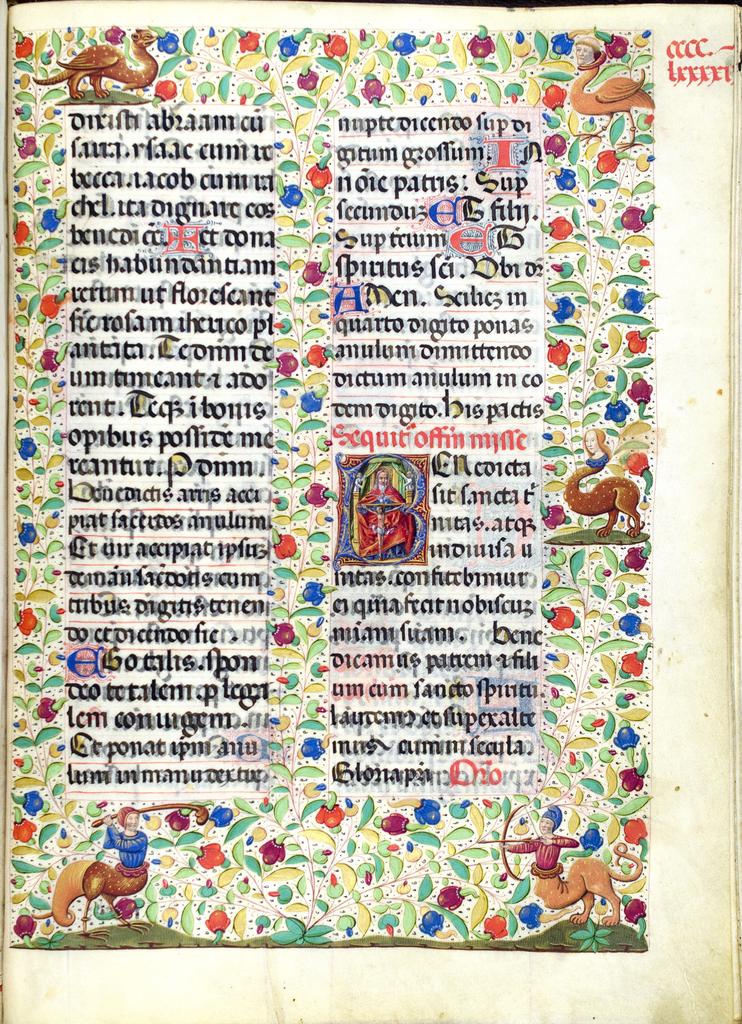 cccc.
lxxxxi
dixisti abraam cū
sarra. ysaac cum re
becca. iacob cum ra
chel. ita dignare eos
benedicē. Et dona
eis habundantiam
rerum ut florescant
sic rosa in iherico pl
antata. Te dnm de
um timeant ⁊ ado
rent. Teqz i bonis
opibus possideme
reantur. P dnm.
Benedictis arris acci
piat sacerdos anulum
Et vir accipiat ipsuz
de manu sacerdotis cum
tribus digitis tenen
do et dicendo sic.
Ego talis. spon
deo te talem. p lega
lem coniugem.
Et ponat ipm anu
lum in manu dextra
nupte dicendo sup di
gitum grossum. In
noīe patris: Sup
secunduz Et filii.
Sup tcium Et
spiritus sci. Vbi dr
Amen. Scilicz in
quarto digito ponas
anulum dimittendo
dictum anulum in eo
dem digito. his pactis
Sequitr offm misse
Benedicta
sit sancta t
nitas. atqz
indiuisa u
nitas. confitebimur
ei quia fecit nobiscuz
miam suam. Bene
dicamus patrem ⁊ fili
um cum sancto spiritu.
laudem⁹ et supexalte
mus eum in secula.
Gloria pri. Oro